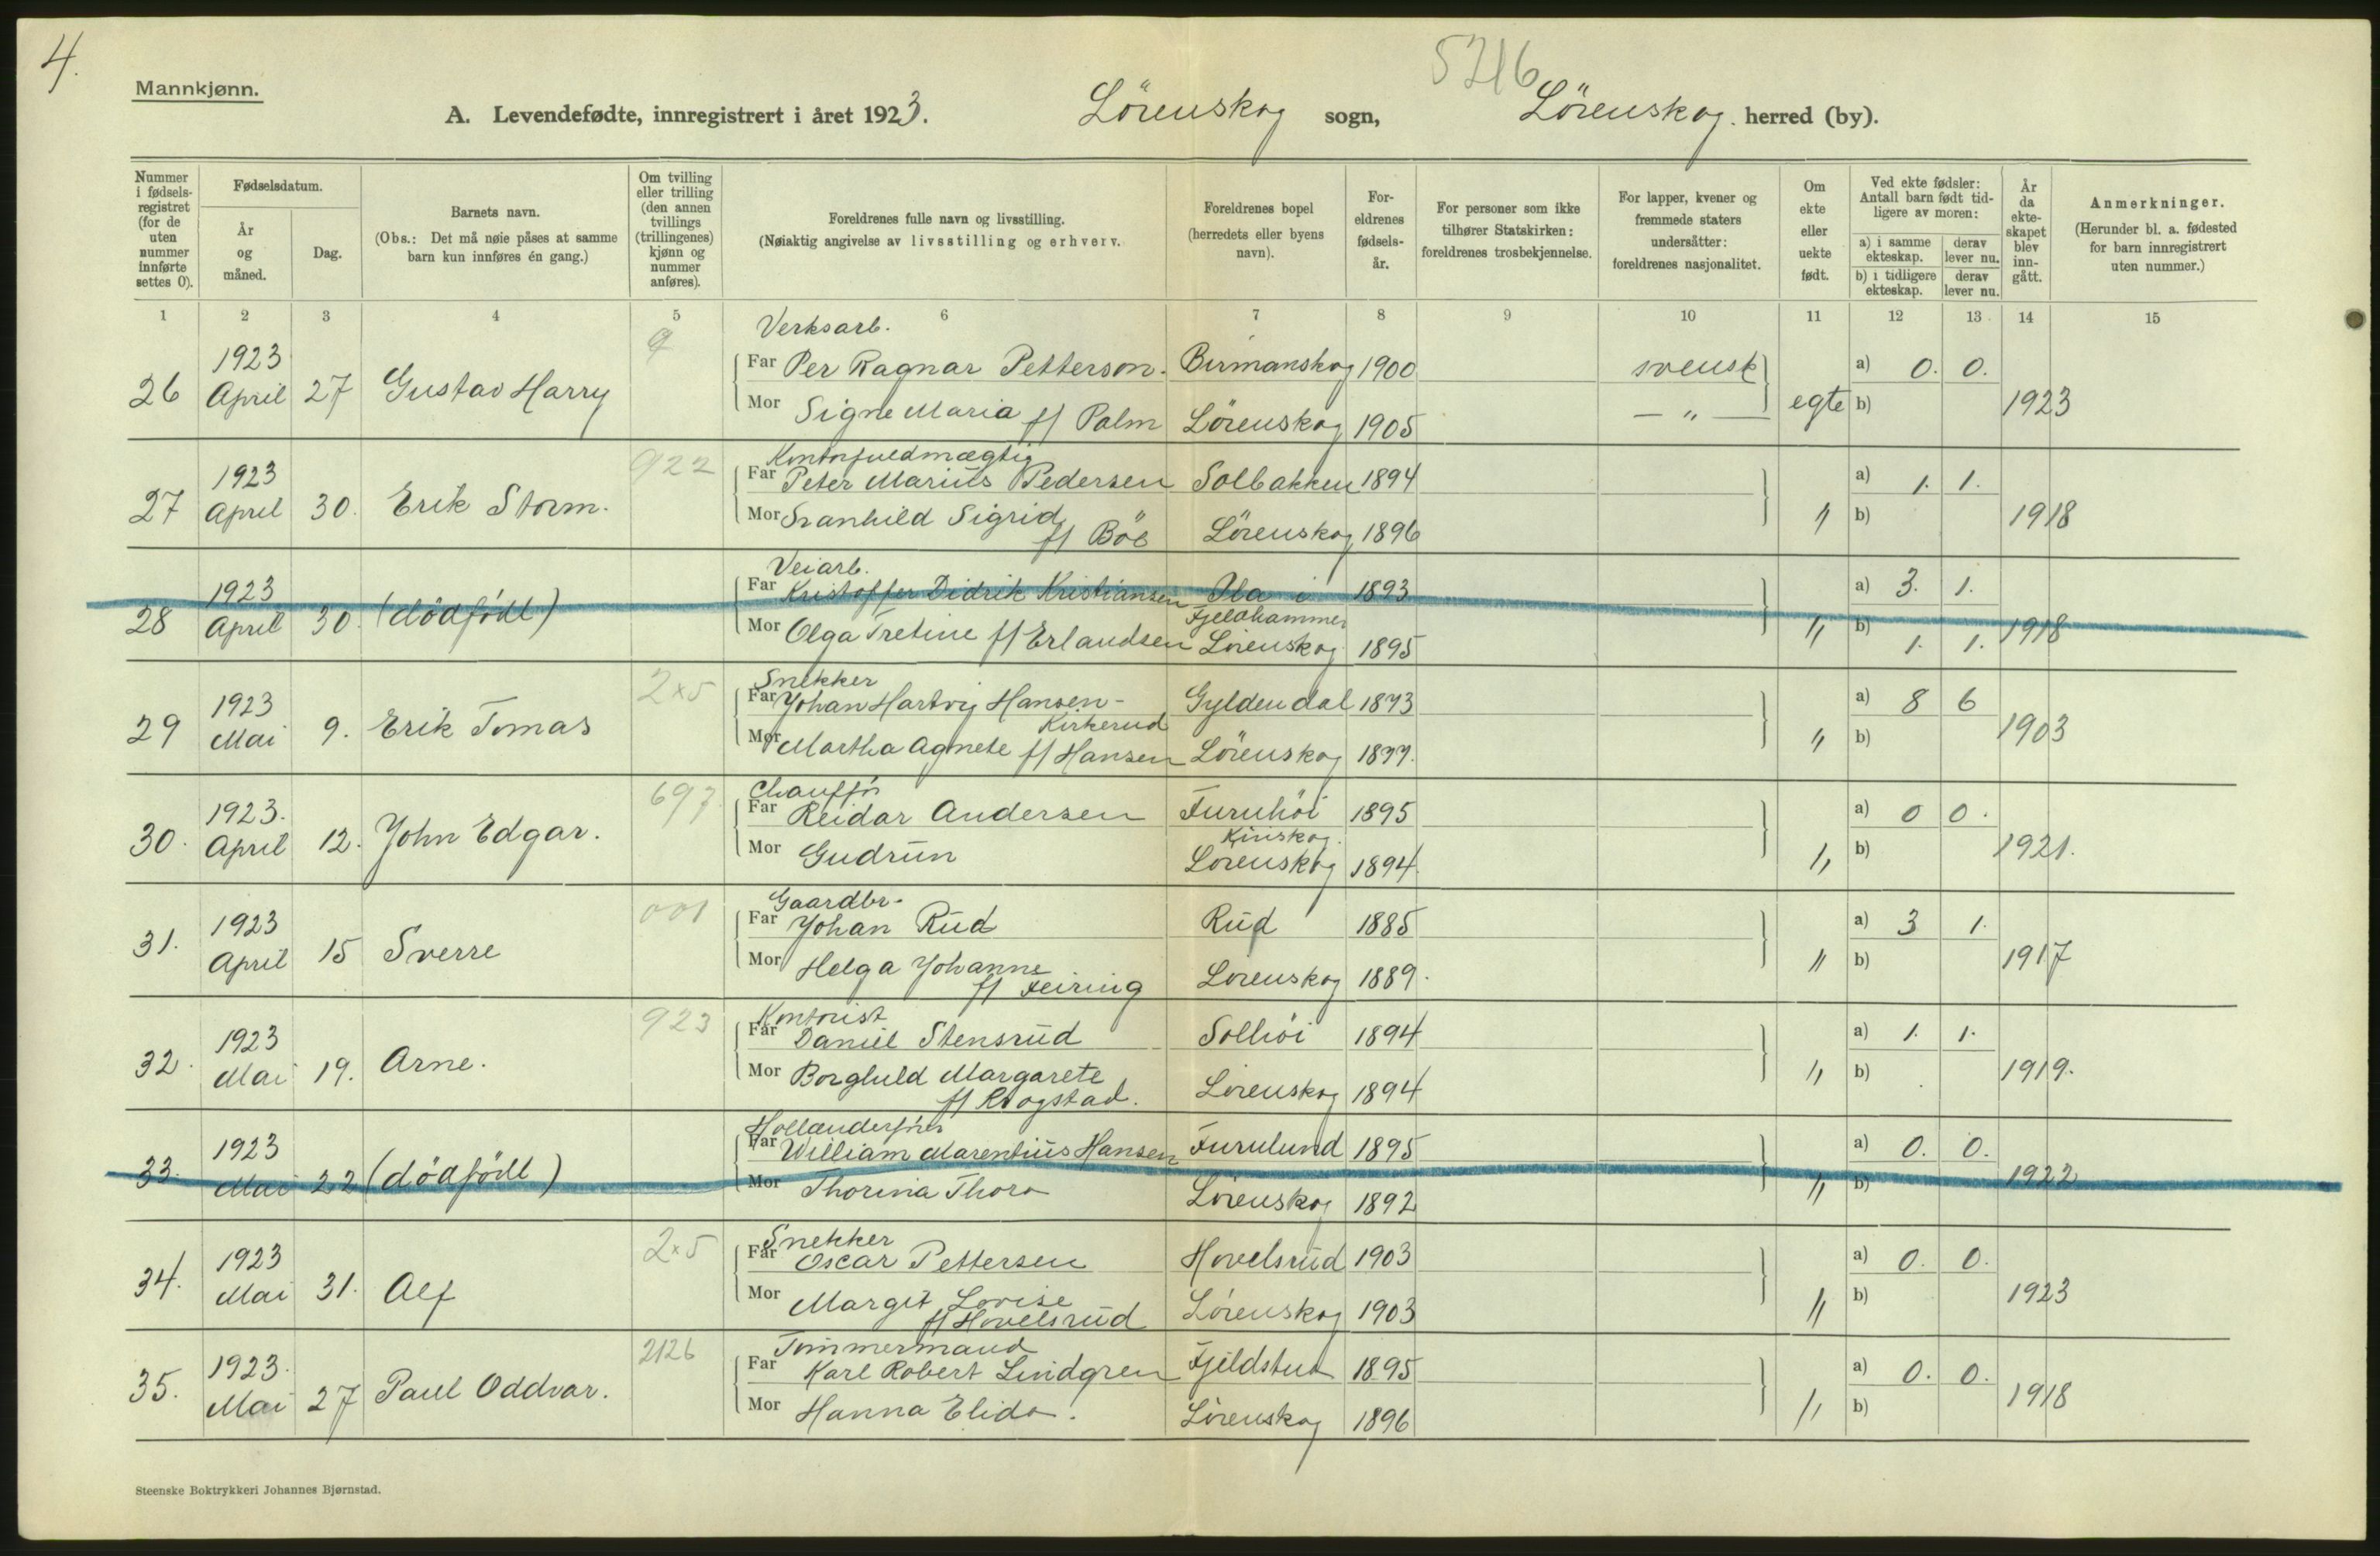 4.
5216
Mannkjønn.
A. Levendefødte, innregistrert i året 1923. Lörenskog sogn, Lörenskog. herred (by).
Nummer i fødselsregistret (for de uten nummer innførte settes 0).
Fødselsdatum.
År og måned.
Dag.
Barnets navn.
(Obs.: Det må nøie påses at samme barn kun innføres én gang.)
Om tvilling eller trilling (den annen tvillings (trillingenes) kjønn og nummer anføres).
Foreldrenes fulle navn og livsstilling.
(Nøiaktig angivelse av livsstilling og erhverv.
Foreldrenes bopel (herredets eller byens navn).
Foreldrenes fødselsår.
For personer som ikke tilhører Statskirken: foreldrenes trosbekjennelse.
For lapper, kvener og fremmede staters undersåtter: foreldrenes nasjonalitet.
Om ekte eller uekte født.
Ved ekte fødsler: Antall barn født tidligere av moren:
a) i samme ekteskap. derav lever nu.
b) i tidligere ekteskap. derav lever nu.
År da ekteskapet blev inngått.
Anmerkninger.
(Herunder bl. a. fødested for barn innregistrert uten nummer.)
1 2 3 4 5 6 7 8 9 10 11 12 13 14 15
Verksarb.
26 1923 April 27 Gustav Harry 9 Far Per Ragnar Petterson. Birmanskog 1900 svensk egte a) 0. 0. 1923
Mor Signe Maria f/ Palm Lörenskog 1905 — " — b)
Kontorfuldmægtig
27 1923 April 30. Erik Storm. 922 Far Peter Marius Pedersen Solbakken 1894 " a) 1. 1. 1918
Mor Svanhild Sigrid f/ Böe Lörenskog 1896 b)
Veiarb.
28 1923 April 30. (dödfödt) Far Kristoffer Didrik Kristiansen i Fjeldhammer 1893 " a) 3. 1. 1918
Mor Olga Tretine f/ Erlandsen Lörenskog 1895 b) 1. 1.
Snekker
29 1923 Mai 9. Erik Tomas 2x5 Far Johan Hartvig Hansen - Kirkerud Gyldendal 1873 " a) 8 6 1903
Mor Martha Agnete f/ Hansen Lörenskog 1877. b)
Chaufför
30. 1923. April 12. John Edgar. 697 Far Reidar Andersen Furuhöi 1895 " a) 0 0. 1921.
Mor Gudrun Lörenskog 1894. b)
Gaardbr.
31. 1923 April 15 Sverre 001 Far Johan Rud Rud 1885 " a) 3 1. 1917
Mor Helga Johanne f/ Feiring Lörenskog 1889. b)
Kontorist
32. 1923 Mai 19. Arne. 923 Far Daniel Stensrud Solhöi 1894 " a) 1. 1. 1919.
Mor Borghild Margarete f/ Rogstad. Lörenskog 1894 b)
33. 1923 Mai 22 (dödfödt) Far William Marentius Hansen Furulund 1895 " a) 0. 0. 1922
Mor Thorina Thora Lörenskog 1892 b)
Snekker
34. 1923 Mai 31. Alf 2x5 Far Oscar Pettersen Hovelsrud 1903 " a) 0. 0. 1923
Mor Margit Lovise f/ Hovelsrud Lörenskog 1903 b)
Tömmermand
35. 1923. Mai 27 Paul Oddvar. 2126 Far Karl Robert Lindgren Fjeldstue 1895 " a) 0. 0. 1918
Mor Hanna Elida. Lörenskog 1896 b)
Steenske Boktrykkeri Johannes Bjørnstad.